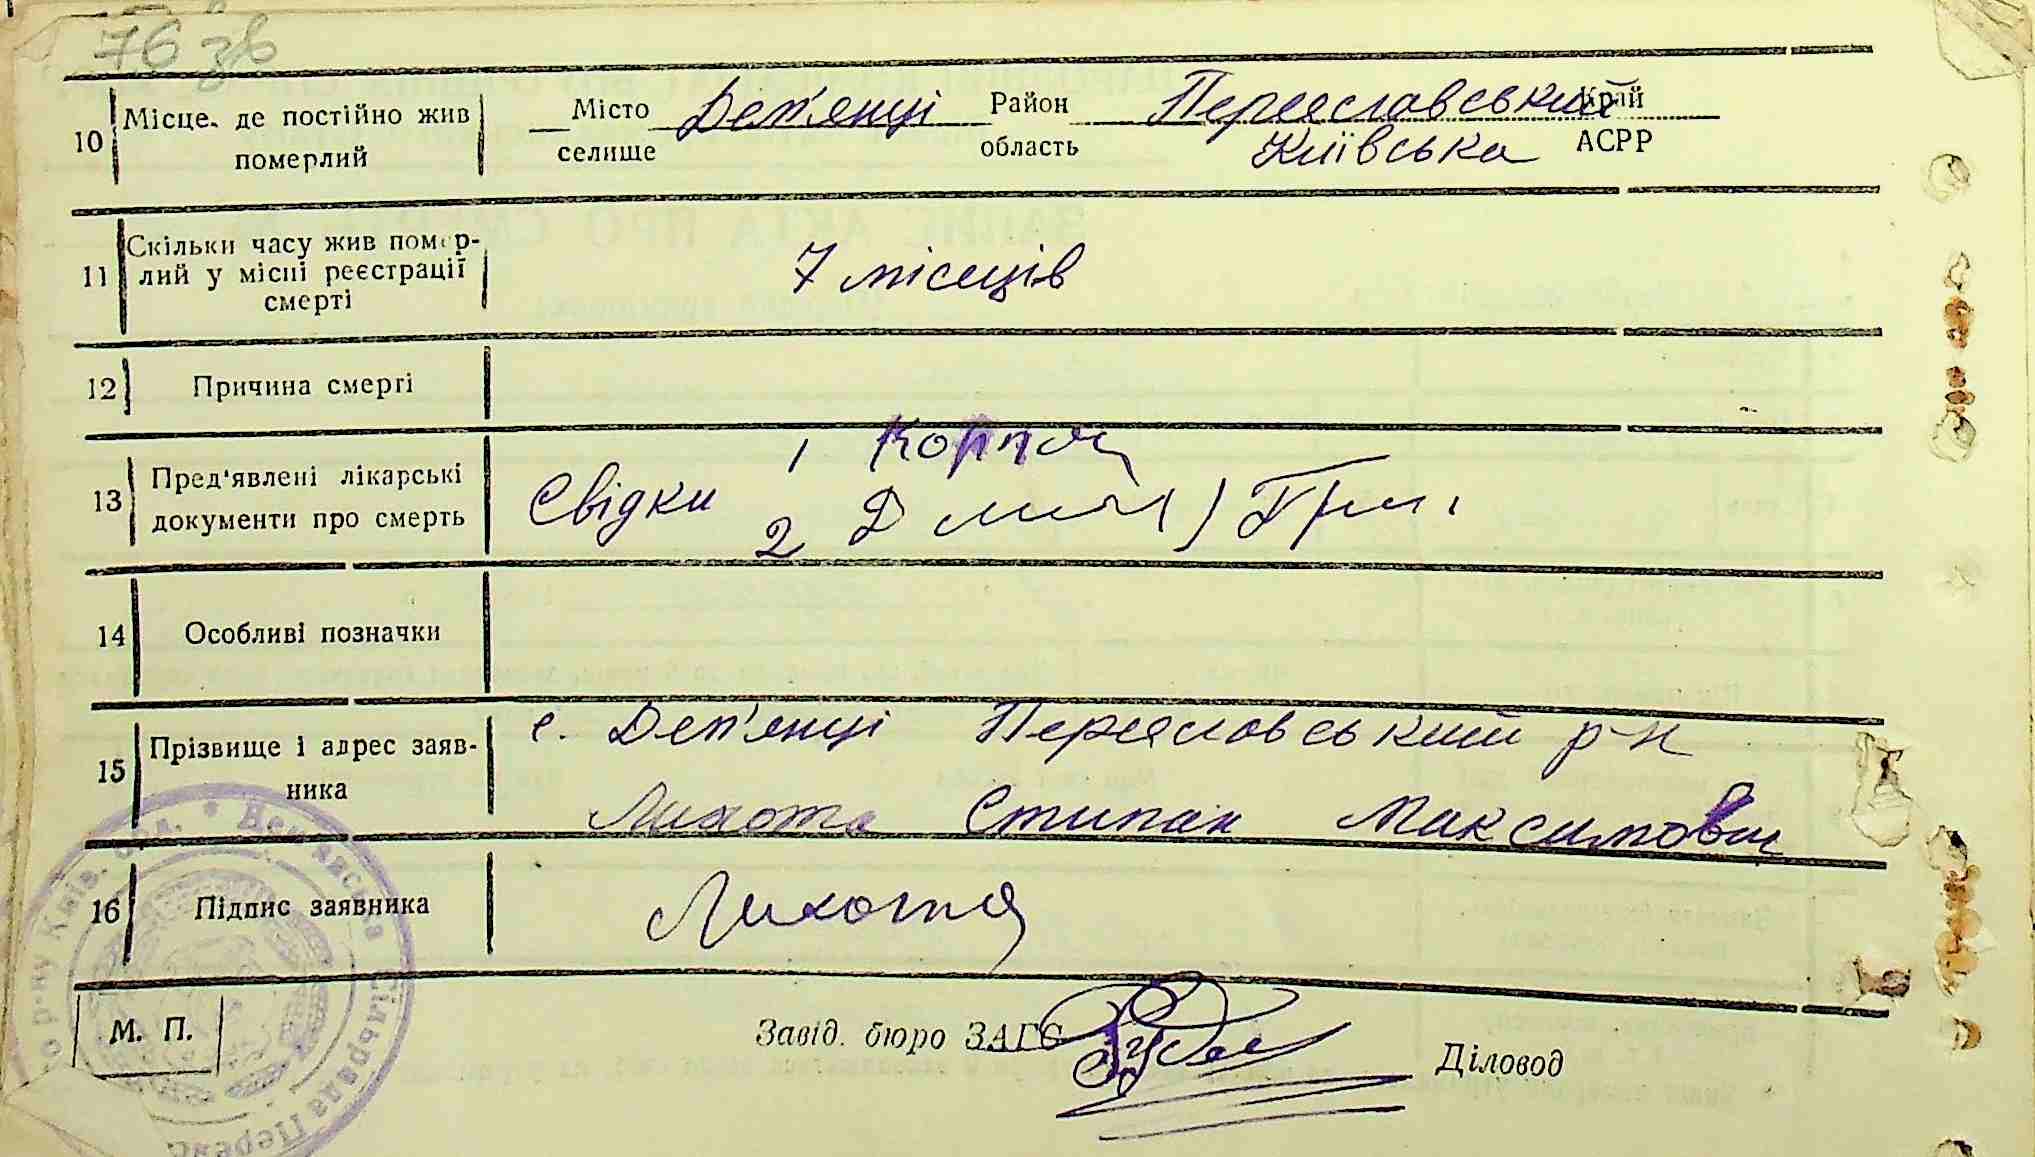 76 зв
10 Місце, де постійно жив померлий
Місто Дем'янці Район Переяславський Край
селище область Київська АСРР
11 Скільки часу жив помер-
лий у місці реєстрації
смерті
7 місяців
12 Причина смерті
13 Пред'явлені лікарські
документи про смерть
Свідки 1
2
14 Особливі позначки
15 Прізвище і адрес заяв-
ника
с. Дем'янці Переяславський р-н
Лихота Степан Максимович
16 Підпис заявника
Лихота
М. П.
Завід. бюро ЗАГС
Діловод